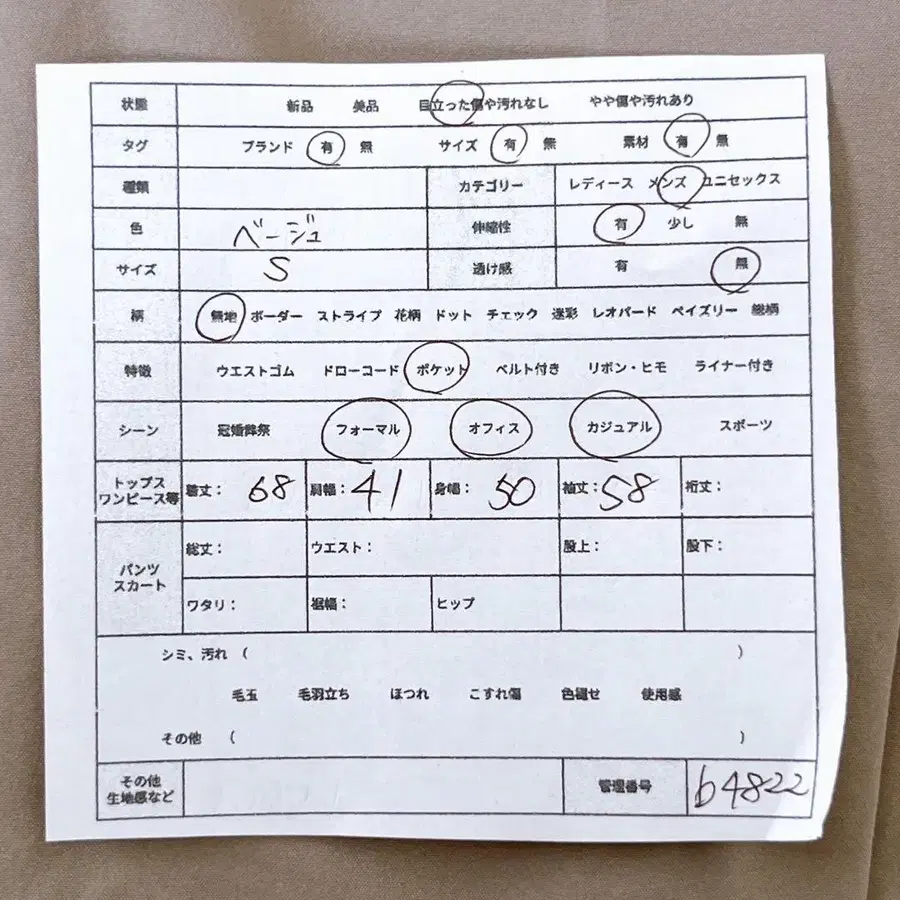 状態 新品 美品 目立った傷や汚れなし やや傷や汚れあり
タグ ブランド 有 無 サイズ 有 無 素材 有 無
種類 カテゴリー レディース メンズ ユニセックス
色 ベージュ 伸縮性 有 少し 無
サイズ S 透け感 有 無
柄 無地 ボーダー ストライプ 花柄 ドット チェック 迷彩 レオパード ペイズリー 総柄
特徴 ウエストゴム ドローコード ポケット ベルト付き リボン・ヒモ ライナー付き
シーン 冠婚葬祭 フォーマル オフィス カジュアル スポーツ
トップス
ワンピース等 着丈: 68 肩幅: 41 身幅: 50 袖丈: 58 裄丈:
総丈: ウエスト: 股上: 股下:
パンツ
スカート
ワタリ: 裾幅: ヒップ
シミ、汚れ ( )
毛玉 毛羽立ち ほつれ こすれ傷 色褪せ 使用感
その他 ( )
その他
生地感など 管理番号 b4822